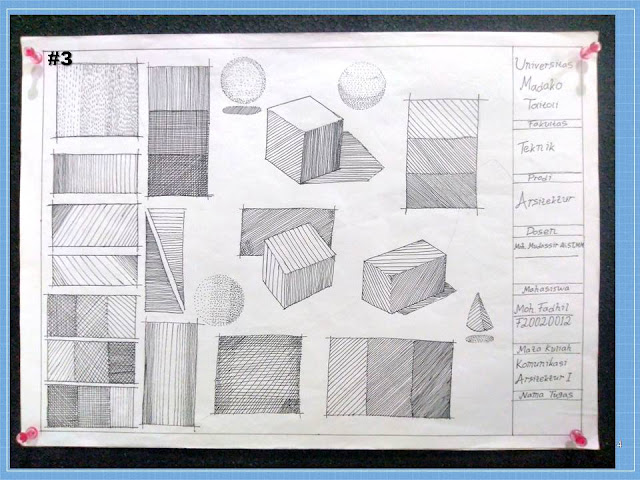 #3
Universitas
Madako
Tolitoli
Fakultas
Teknik
Prodi
Arsitektur
Dosen
Moh. Mudassir
Mahasiswa
Moh. Fadhil
F20020012
Mata Kuliah
Komunikasi
Arsitektur I
Nama Tugas
4